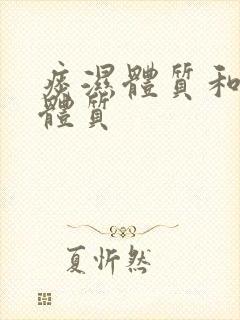 痰濕體質和
體質
夏忻然